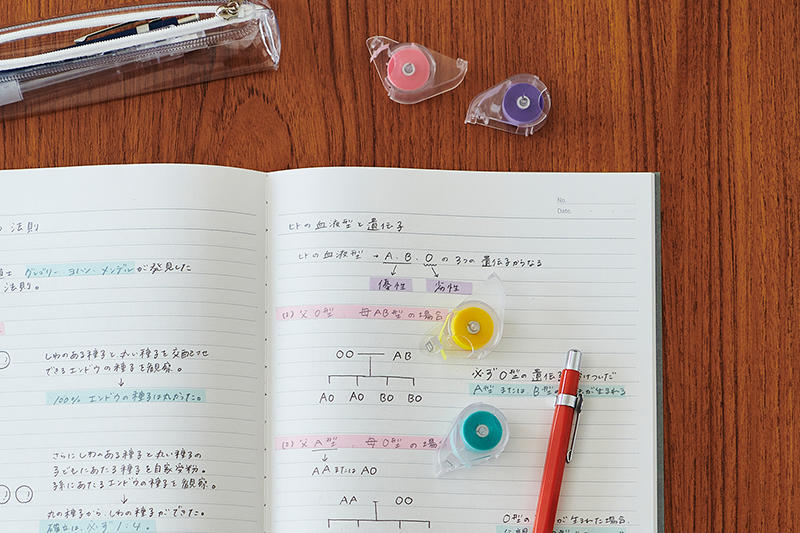 法則
グレゴリー・ヨハン・メンデルが発見した
法則。
しわのある種子と丸い種子を交配させ
できるエンドウの種子を観察。
↓
100% エンドウの種子は丸かった。
さらにしわのある種子と丸い種子の
子どもにあたる種子を自家受粉。
孫にあたるエンドウの種子を観察。
↓
丸の種子から、しわの種子ができた。
確立は、必ず1:4。
No.
Date.
ヒトの血液型と遺伝子
ヒトの血液型 → A、B、Oの3つの遺伝子からなる
優性 劣性
父O型 母AB型の場合
OO AB
AO AO BO BO
※必ずO型の遺伝子
A型またはB型 が生まれる
父A型、母O型の場合
↓
AAまたはAO
AA OO
O型の が生まれた場合、